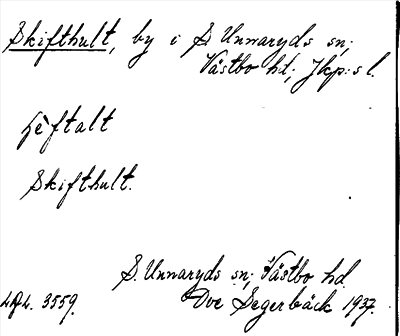 Skifthult, by i S. Unnaryds sn;
Västbo hd; Jkp:s l.
hèftalt
Skifthult.
S. Unnaryds sn; Västbo hd
3559. Ove Segerbäck 1937.